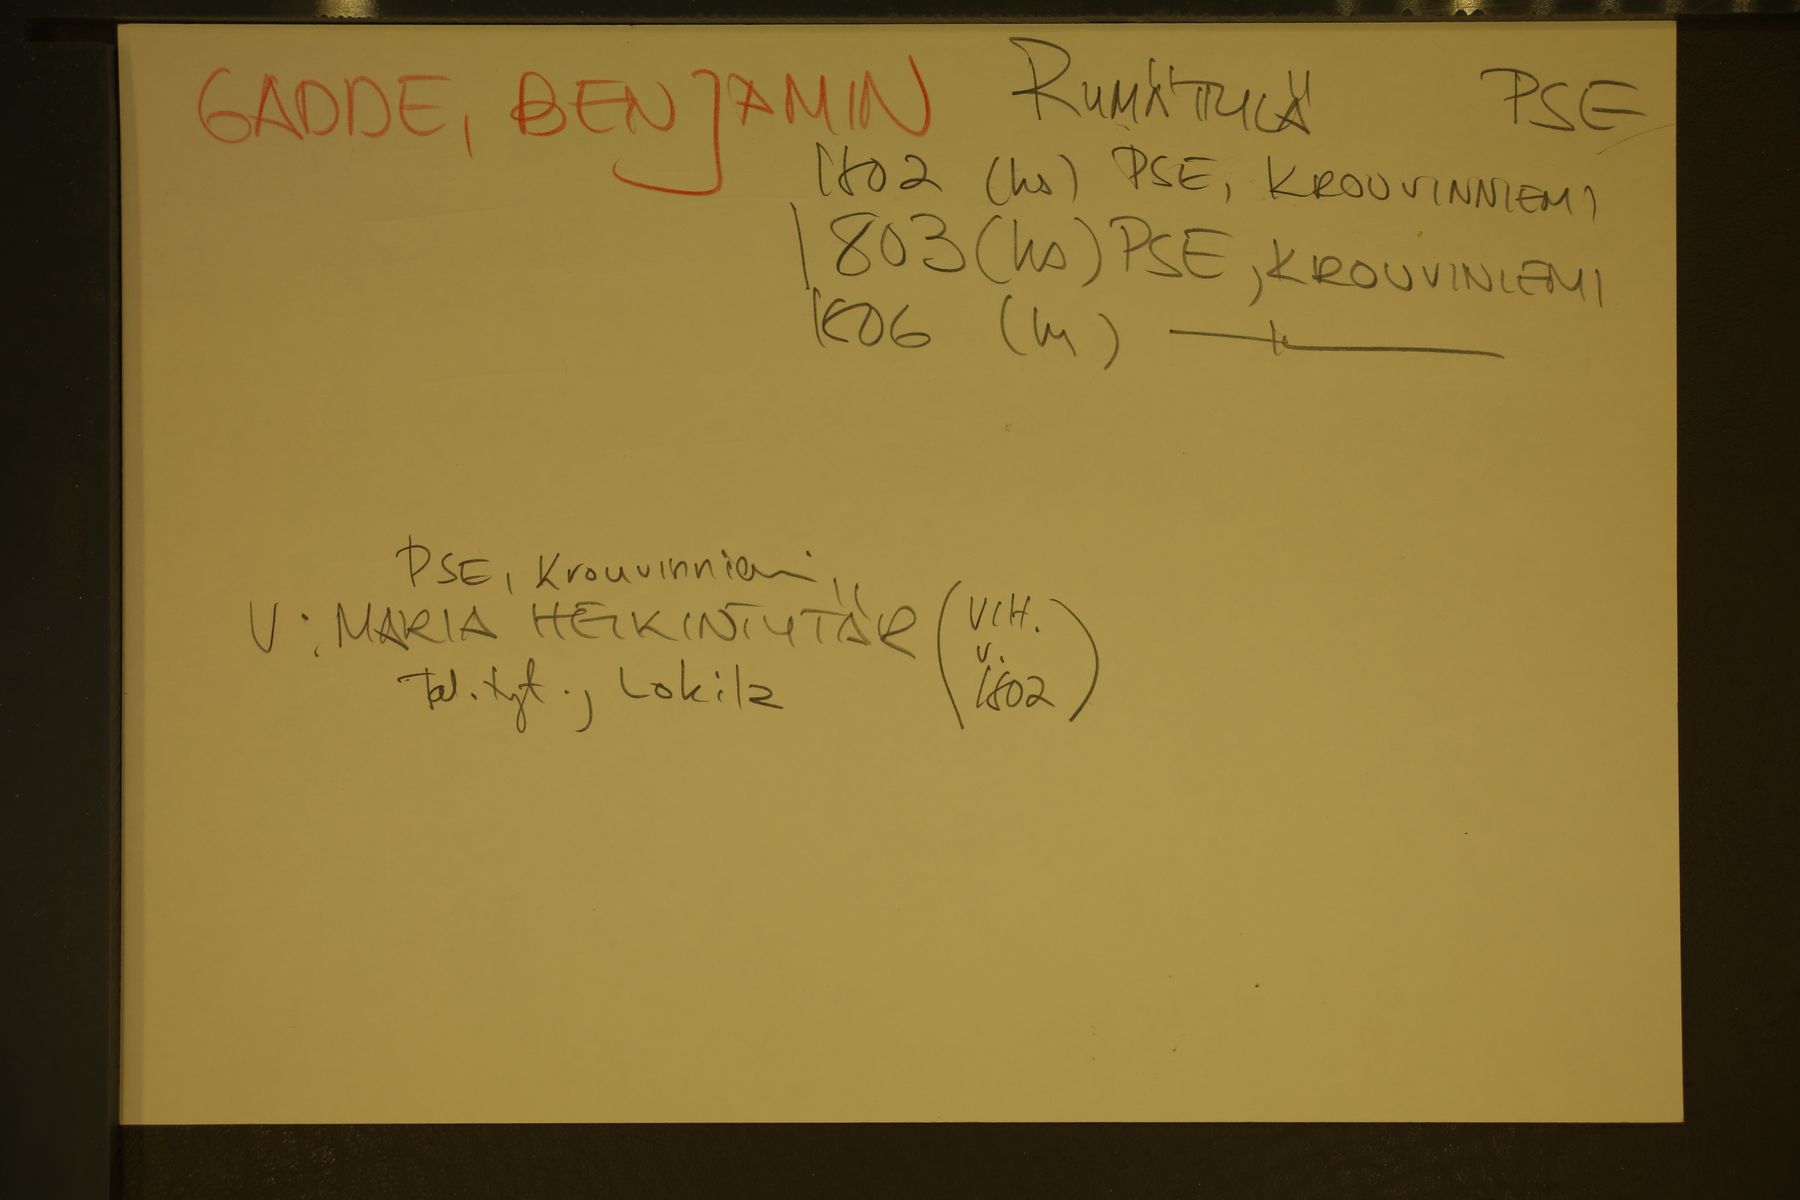 GADDE, BENJAMIN RUMÄTYLÄ PSE
1802 (hs) PSE, KROUVINNIEMI
1803 (hs) PSE, KROUVINIEMI
1806 (hs) —"—
PSE, Krouvinniemi
V: MARIA HEIKINTYTÄR (VIH. v. 1802)
Tal. tyt., Lokila